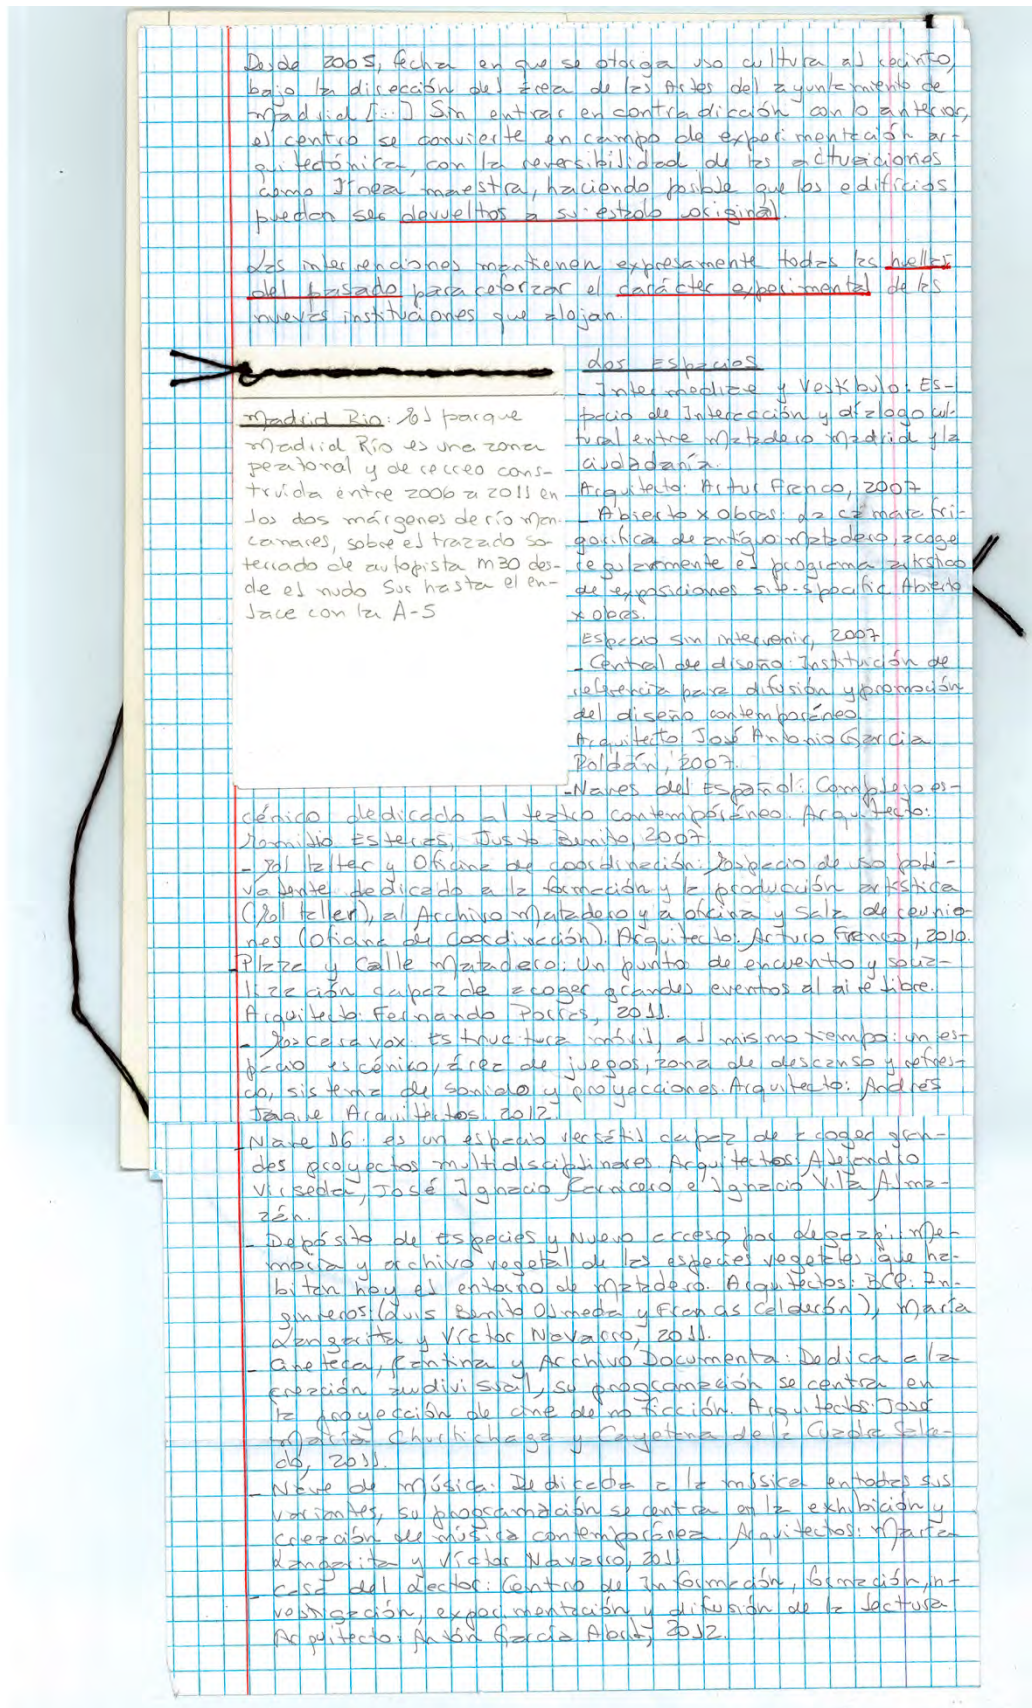 Desde 2005, fecha en que se otorga uso cultura al recinto,
bajo la dirección del área de las Artes del ayuntamiento de
Madrid [...] Sin entrar en contradicción con lo anterior,
el centro se convierte en campo de experimentación ar-
quitectónica, con la reversibilidad de las actuaciones
como línea maestra, haciendo posible que los edificios
puedan ser devueltos a su estado original.
Las intervenciones mantienen expresamente todas las huellas
del pasado para reforzar el carácter experimental de las
nuevas instituciones que alojan.
Madrid Rio: El parque
Madrid Río es una zona
peatonal y de recreo cons-
truida entre 2006 a 2011 en
los dos márgenes de río Man-
canares, sobre el trazado so-
terrado de autopista M30 des-
de el nudo Sur hasta el en-
lace con la A-5
Los Espacios
- Intermediae y Vestíbulo: Es-
pacio de Interacción y diálogo cul-
tural entre Matadero Madrid y la
ciudadanía.
Arquitecto: Artur Franco, 2007
- Abierto x Obras: La cámara fri-
gorífica de antiguo matadero, acoge
regularmente el programa artístico
de exposiciones site-specific Abierto
x obras.
Espacio sin intervenir, 2007
- Central de diseño: Institución de
referencia para difusión y promoción
del diseño contemporáneo.
Arquitecto José Antonio García
Roldán, 2007.
- Naves del Español: Complejo es-
cénico dedicado al teatro contemporáneo. Arquitecto:
Emilio Esteras, Justo Benito, 2007.
- El taller y Oficina de coordinación: Espacio de uso poli-
valente dedicado a la formación y la producción artística
(El taller), al Archivo Matadero y a oficina y Sala de reunio-
nes (Oficina de Coordinación). Arquitecto: Arturo Franco, 2010.
- Plaza y Calle Matadero: Un punto de encuentro y socia-
lización capaz de acoger grandes eventos al aire libre.
Arquitecto: Fernando Porras, 2011.
- Escaravox: Estructura móvil, al mismo tiempo: un es-
pacio escénico, área de juegos, zona de descanso y refres-
co, sistema de sonido y proyecciones. Arquitecto: Andrés
Jaque Arquitectos 2012
Nave 16: es un espacio versátil capaz de acoger gran-
des proyectos multidisciplinares. Arquitectos: Alejandro
Virseda, José Ignacio Carnicero e Ignacio Vila Alma-
zán.
- Depósito de Especies y Nuevo acceso por Legazpi: Me-
moria y archivo vegetal de las especies vegetales que ha-
bitan hoy el entorno de Matadero. Arquitectos: BCP: In-
ginieros (Luis Benito Olmeda y Calderón), María
Langarita y Víctor Navarro, 2011.
- Cineteca, Cantina y Archivo Documenta: Dedica a la
creación audivisual, su programación se centra en
la proyección de cine de no ficción. Arquitectos: José
María Churtichaga y Cayetana de la Cuadra Salce-
do, 2011.
- Nave de Música: Dedicada a la músicel en todas sus
variantes, su programación se centra en la exhibición y
creación de música contemporánea. Arquitectos: María
Langarita y Víctor Navarro, 2011.
- Casa del Lector: Centro de Información, formación, in-
vestigación, experimentación y difusión de la lectura
Arquitecto: Antón García Abril, 2012.